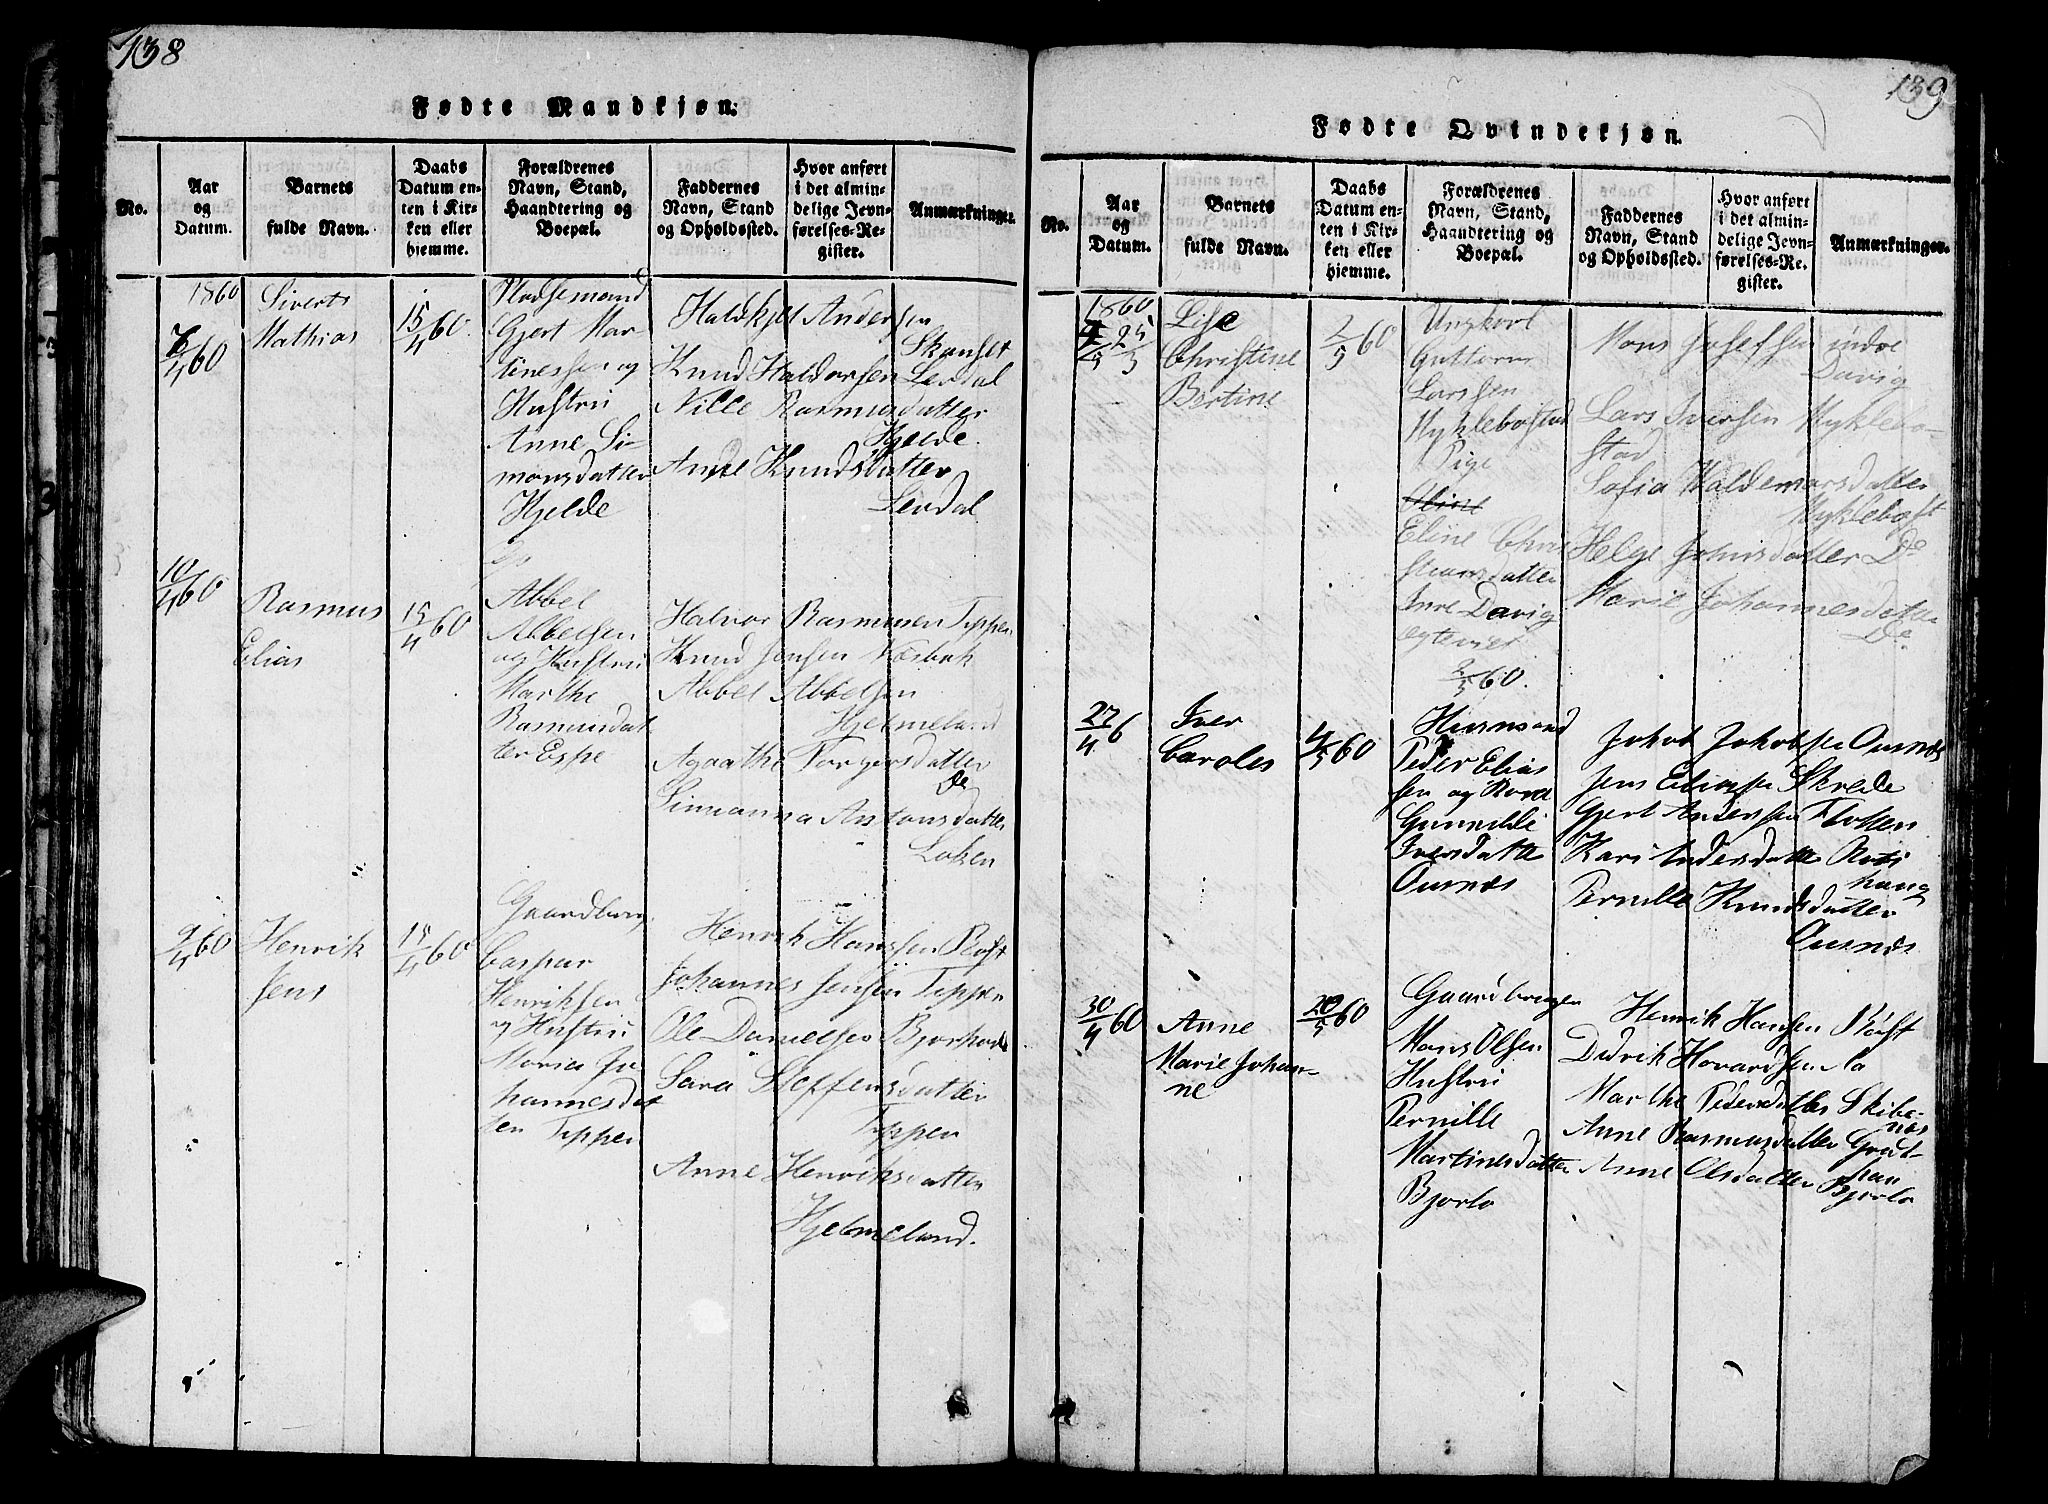 138
Fødte Mandkjøn.
No.
Aar
og
Datum.
Barnets
fulde Navn.
Daabs
Datum en-
ten i Kir-
ken eller
hjemme.
Forældrenes
Navn, Stand,
Haandtering og
Boepæl.
Faddernes
Navn, Stand
og Opholdssted.
Hvor anført
i det almin-
delige Jevn-
førelses-Re-
gister.
Anmærkninger.
1860
4/60
Siverts
Mathias
15/4 60.
Huusemand
Gjert Mar-
tinessen og
Hustru
Anne Si-
monsdatter
Hjelde
Haldkjel Andersen
Skanset
Knud Haldorsen Levdal
Nille Rasmusdatter
Hjelde.
Anne Knudsdatter
Levdal
10/4 60
Rasmus
Elias
15/4 60
Abbel
Abbelsen
og Hustru
Marthe
Rasmusdat
ter Espe
Halvor Rasmusen Tippen
Knud Jensen Næsbak
Abbel Abbelsen
Hjelmeland
Agaathe Torgersdatter
Do
Simianna Antonsdatter
Loken
9/4 60
Henrik
Jens
15/4 60
Gaardbrug.
Caspar
Henriksen
og Hustru
Maria Jo
hannesdat
ter Tippen
Henrik Hanssen Røst
Johannes Jensen Tippen
Ole Danielsen
Sara Steffensdatter
Tippen
Anne Henriksdatter
Hjelmeland.
139
Fødte Qvindekjøn.
No.
Aar
og
Datum.
Barnets
fulde Navn.
Daabs
Datum en-
ten i Kir-
ken eller
hjemme.
Forældrenes
Navn, Stand,
Haandtering og
Boepæl.
Faddernes
Navn, Stand
og Opholdssted.
Hvor anført
i det almin-
delige Jevn-
førelses-Re-
gister.
Anmærkninger.
1860
25/3
Lise
Christine
Bertine
2/5 60
Ungkarl
Guttorm
Larssen
Myklebostad
Pige
Oline
Eline Chris
tiansdatter
Inre Davig
egteviet
2/5 60.
Mons Josefsen indre
Davig
Lars Iversen Myklebo-
stad
Sofia Waldemarsdatter
Myklebost
Helge Johnsdatter Do
Marie Johannesdatter
Do
27/4 6
Iver
Caroles
4/5 60
Huusmand
Peder Elias
sen og Kone
Gunnilde
Iversdatter
Ournæs
Jakob Jakobsen Ournæs
Jens Eliassen Skrede
Gjert Andersen Flotten
Kari Andersdatter
haug
Pernille Knudsdatter
Ournæs
30/4 60
Anne
Marie Johan-
ne
20/5 60
Gaardbruger
Mons Olsen
Hustru
Pernille
Martinesdatter
Bjorlo
Henrik Hansen Røst
Didrik Hovardsen Mo
Marthe Pedersdatter Skibe-
næs
Anne Rasmusdatter
Anne Olsdatter Bjorlo